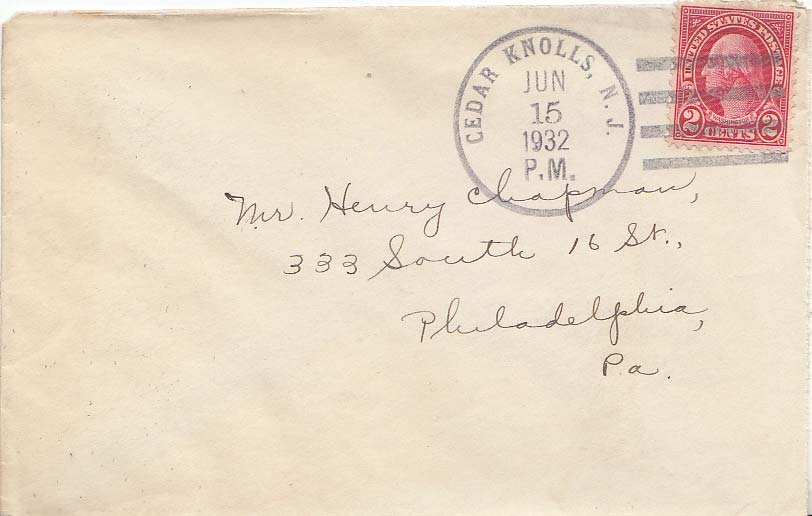 CEDAR KNOLLS, N. J.
JUN
15
1932
P.M.
UNITED STATES POSTAGE
WASHINGTON
2 CENTS 2
Mr. Henry Chapman,
333 South 16 St.,
Philadelphia,
Pa.